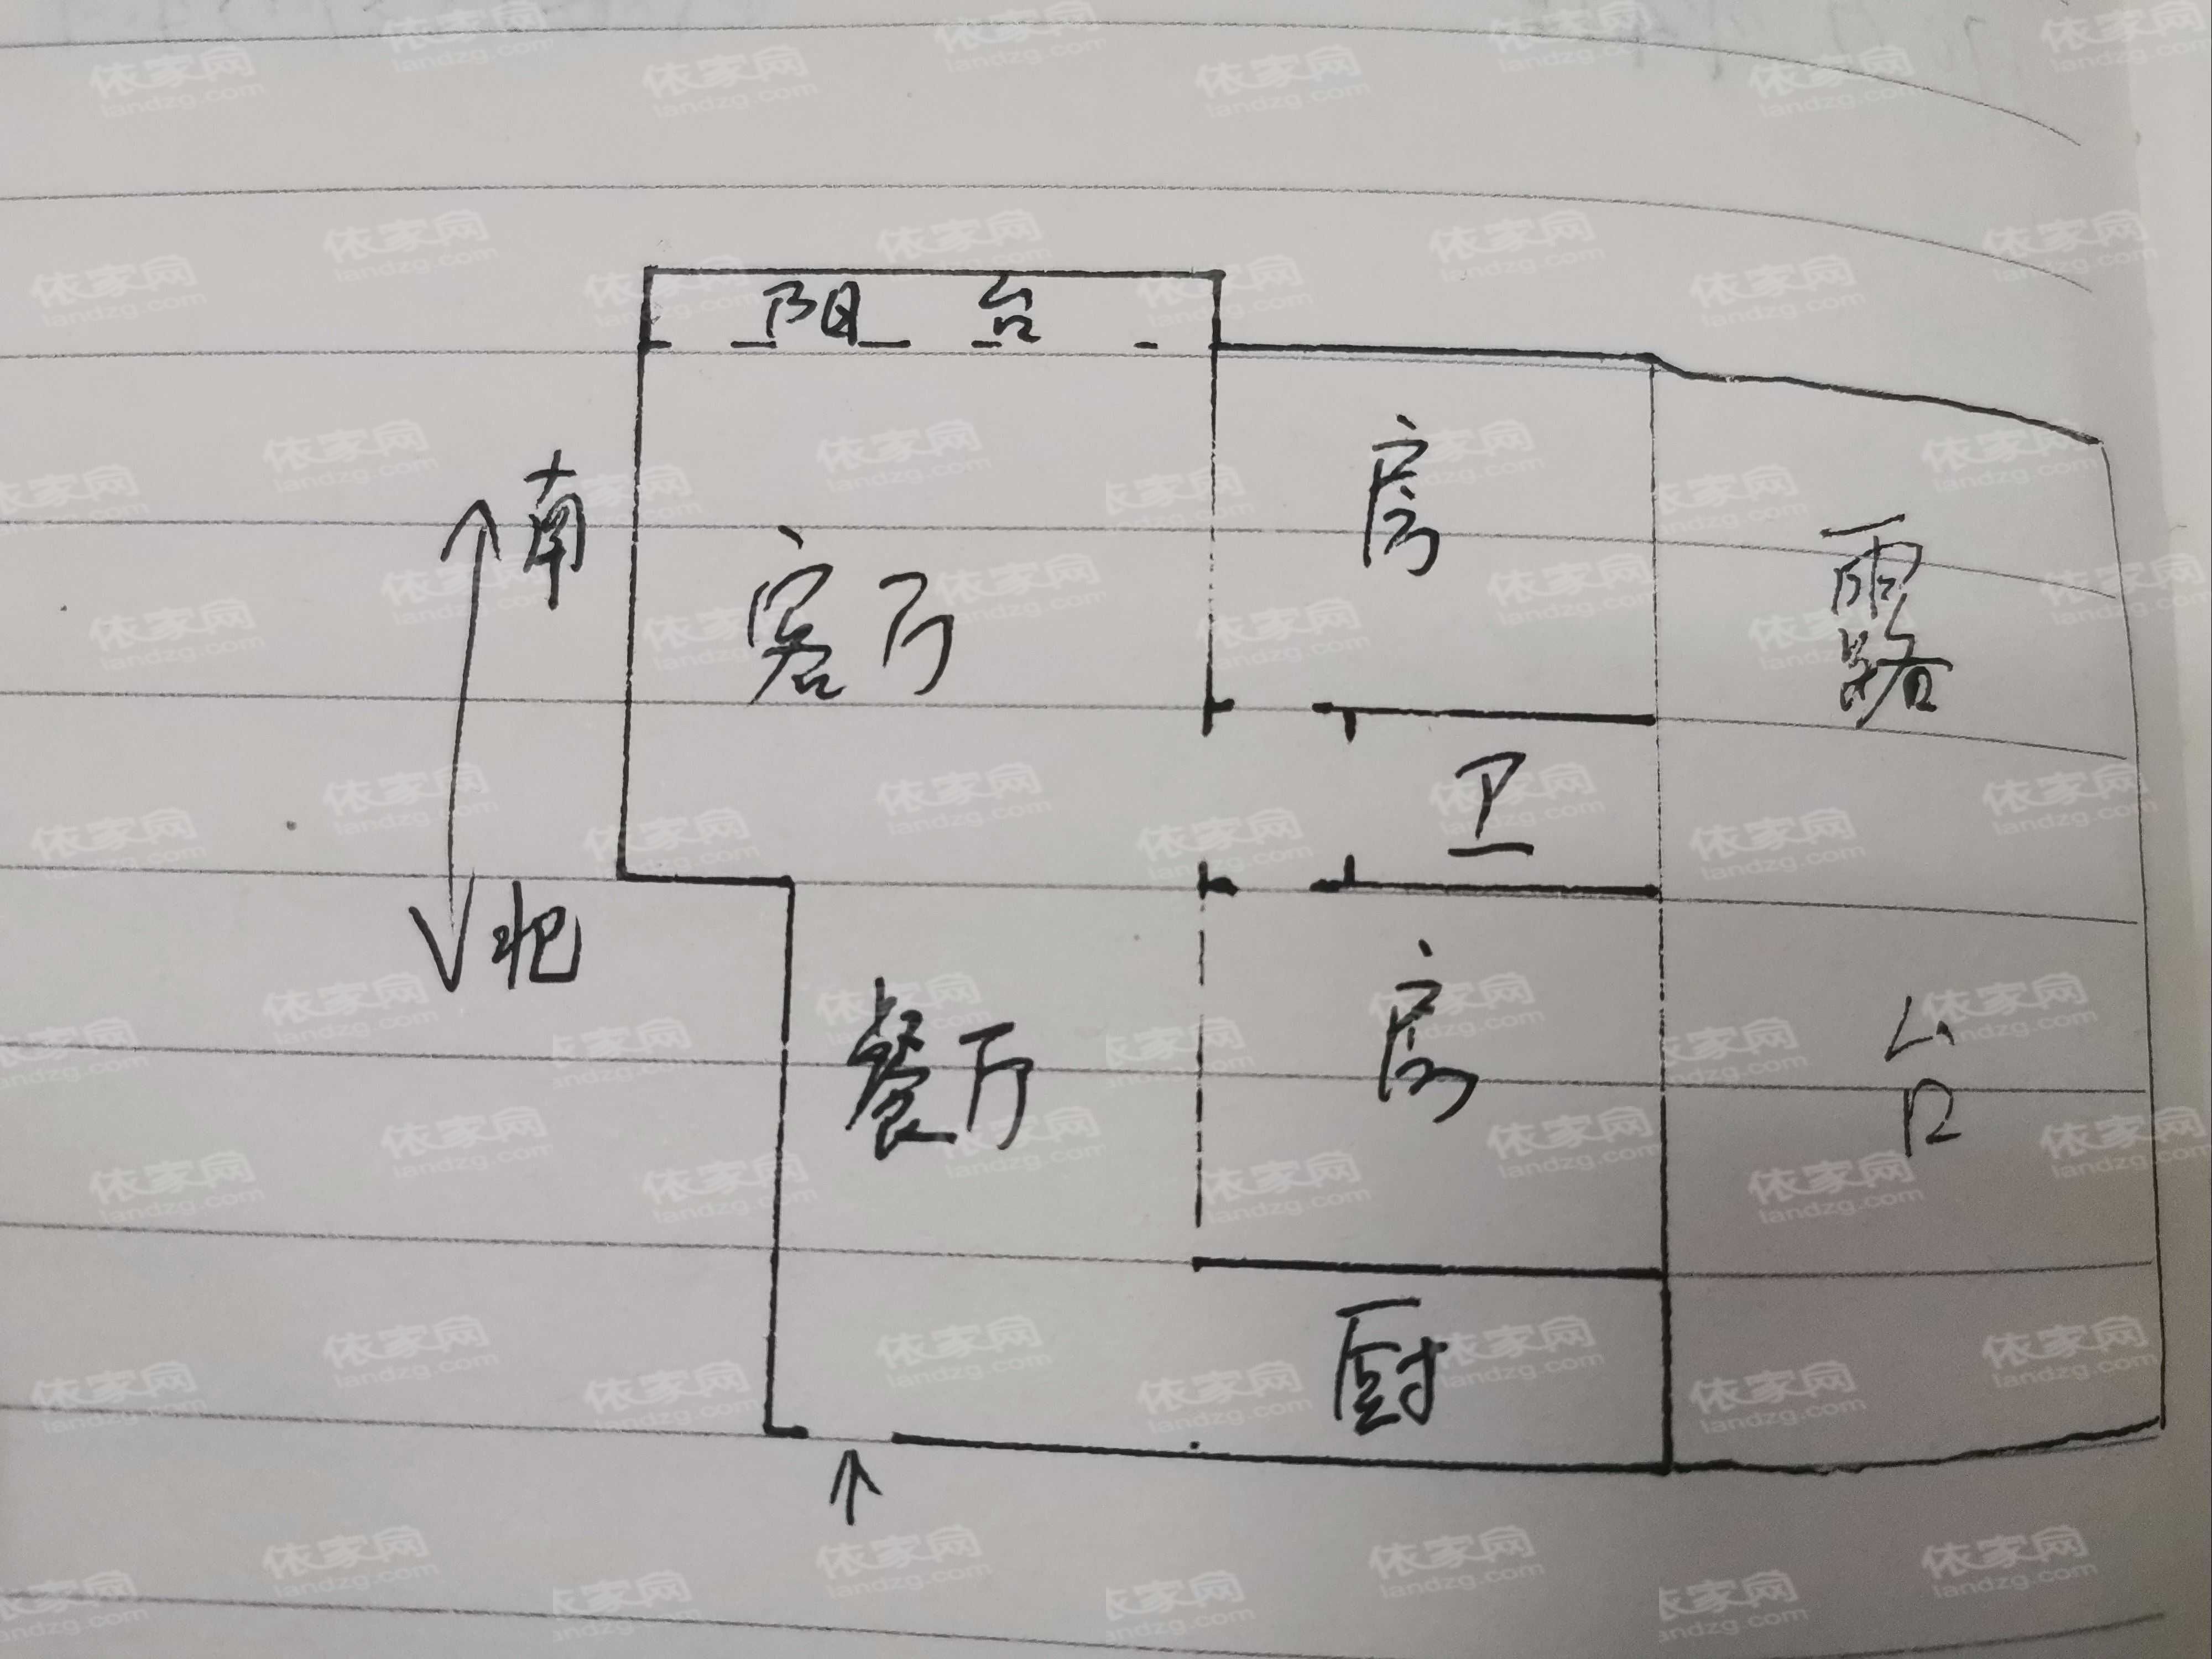 阳台
南
房
客厅
露
卫
北
房
餐厅
台
厨
依家网
landzg.com